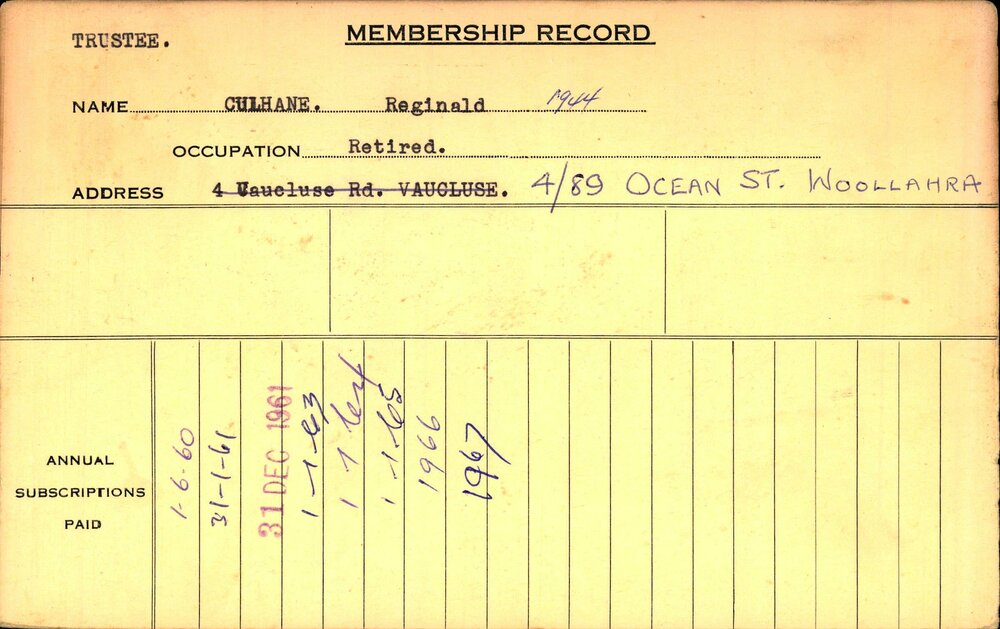 TRUSTEE.
MEMBERSHIP RECORD
NAME CULHANE. Reginald 1944
OCCUPATION Retired.
ADDRESS 4 Vaucluse Rd. VAUCLUSE. 4/89 OCEAN ST. WOOLLAHRA
ANNUAL
SUBSCRIPTIONS
PAID
1-6-60
31-1-61
31 DEC 1961
1-1-63
1 1 64
1-1-65
1966
1967